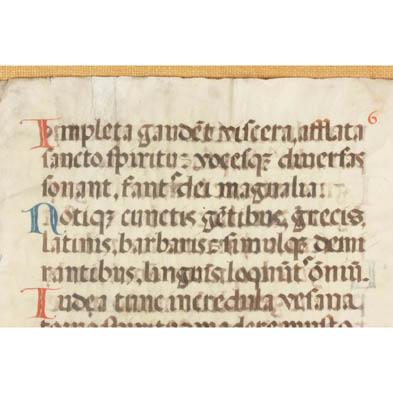 6
Impleta gaudēt viscera, afflata
sancto spiritu: vocesqꝫ diversas
sonant, fantᷣ dei magnalia:
Notiqꝫ cunctis gētibus, grecis,
latinis, barbaris: simulqꝫ demi
rantibus, linguis loquūtᷣ oīum.
Iudea tunc incredula vesana
torvo spiritu: madere musto